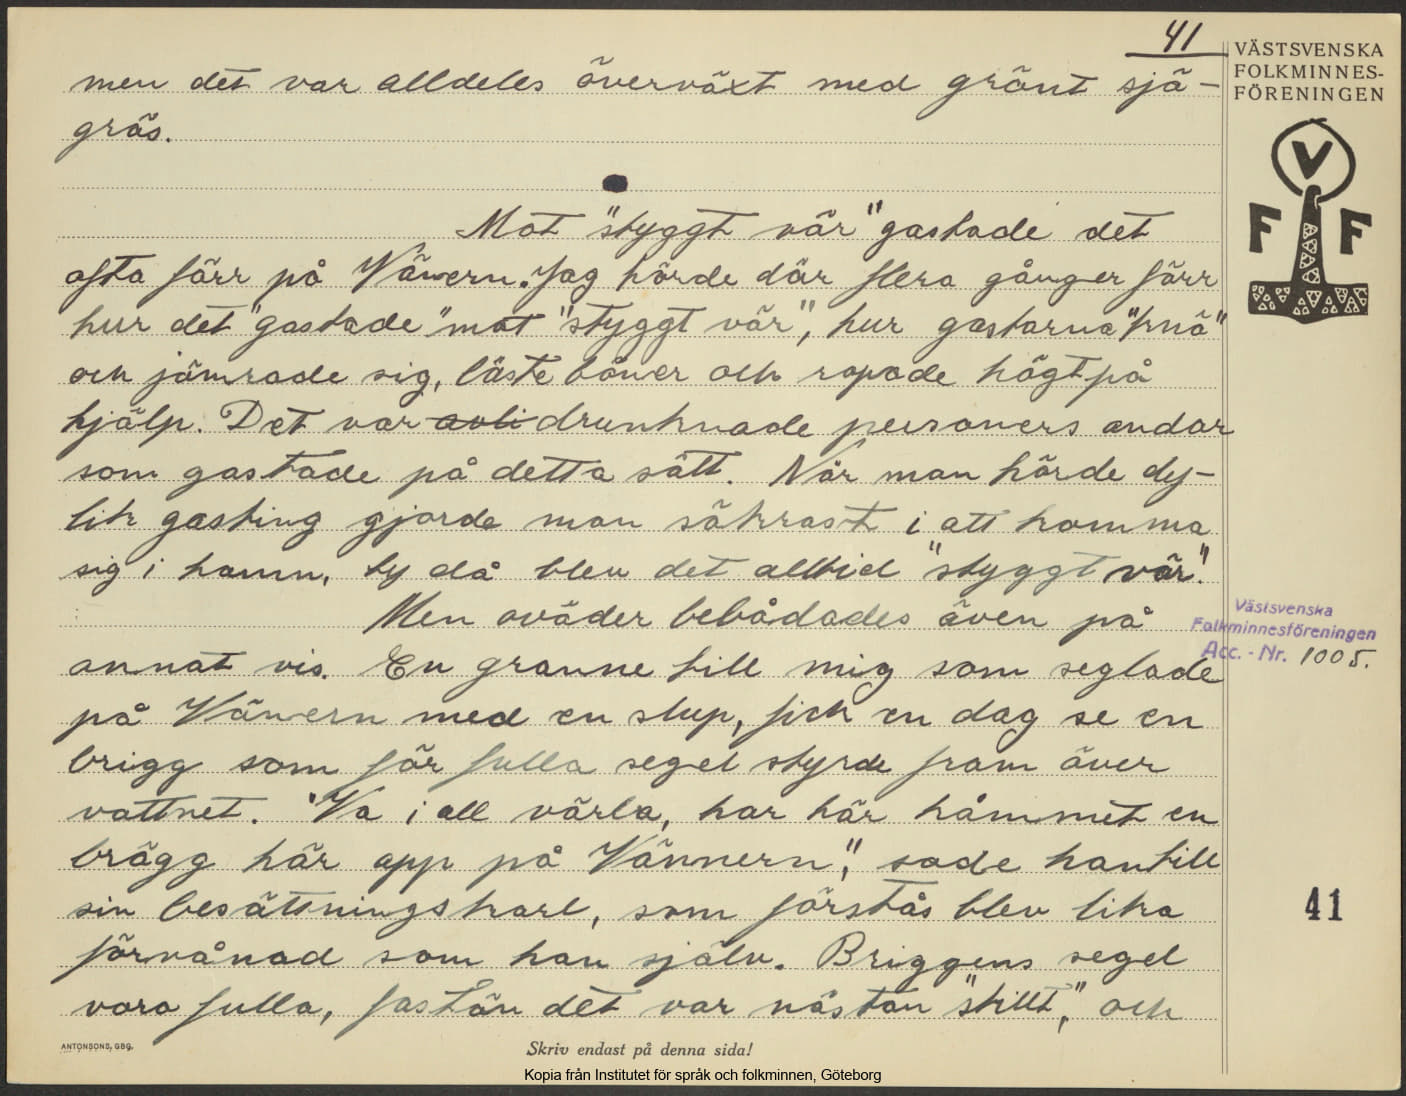 41
VÄSTSVENSKA
FOLKMINNES-
FÖRENINGEN
men det var alldeles överväxt med grönt sjö-
gräs.
V
F F
Mot "styggt vär" gastade det
ofta förr på Vänern. Jag hörde där flera gånger förr
hur det "gastade" mot "styggt vär", hur gastarna "knö"
och jämrade sig, läste böner och ropade högt på
hjälp. Det var avli drunknade personers andar
som gastade på detta sätt. När man hörde dy-
lik gasting gjorde man säkrast i att komma
sig i hamn, ty då blev det alltid "styggt vär".
Men oväder bebådades även på
annat vis. En granne till mig som seglade
på Vänern med en slup, fick en dag se en
brigg som för fulla segel styrde fram över
vattnet. "Va i all värla, har här kåmmet en
brägg här opp på Vännern", sade han till
sin besättningskarl, som förstås blev lika
förvånad som han själv. Briggens segel
voro fulla, fastän det var nästan "stillt", och
Västsvenska
Folkminnesföreningen
Acc. - Nr. 1005.
41
ANTONSONS, GBG.
Skriv endast på denna sida!
Kopia från Institutet för språk och folkminnen, Göteborg